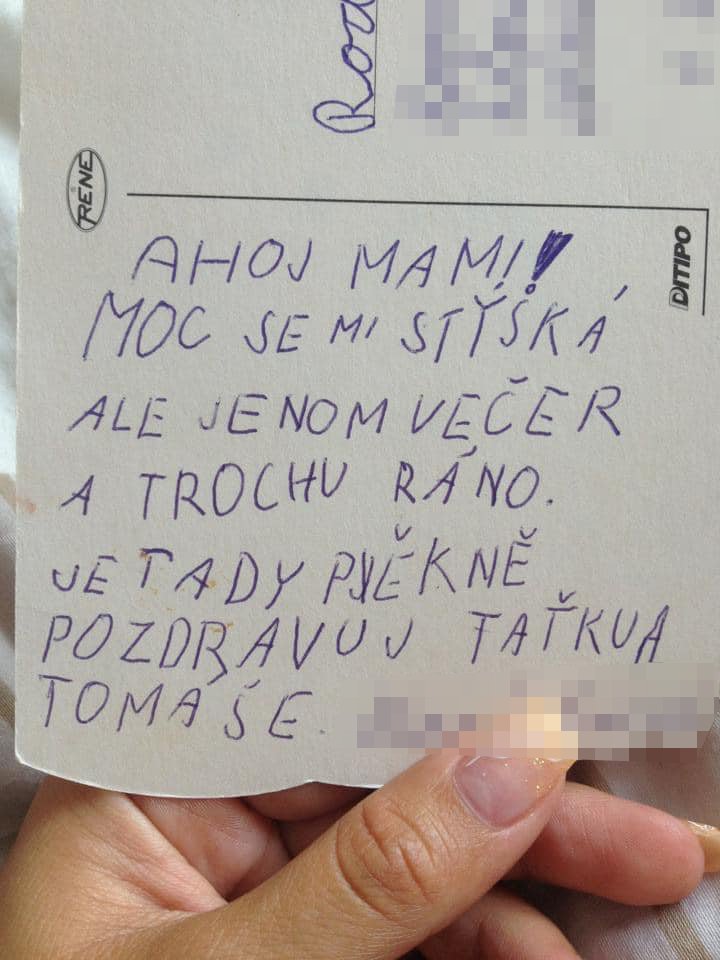 Rod
RENE
DITIPO
AHOJ MAMI!
MOC SE MI STÝŠKÁ
ALE JENOM VEČER
A TROCHU RÁNO.
JE TADY PJĚKNĚ
POZDRAVUJ TAŤKUA
TOMÁŠE.